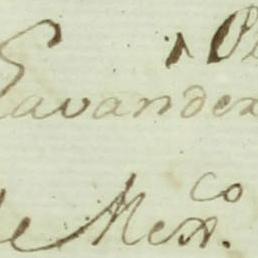 Gavander
de Mexco.